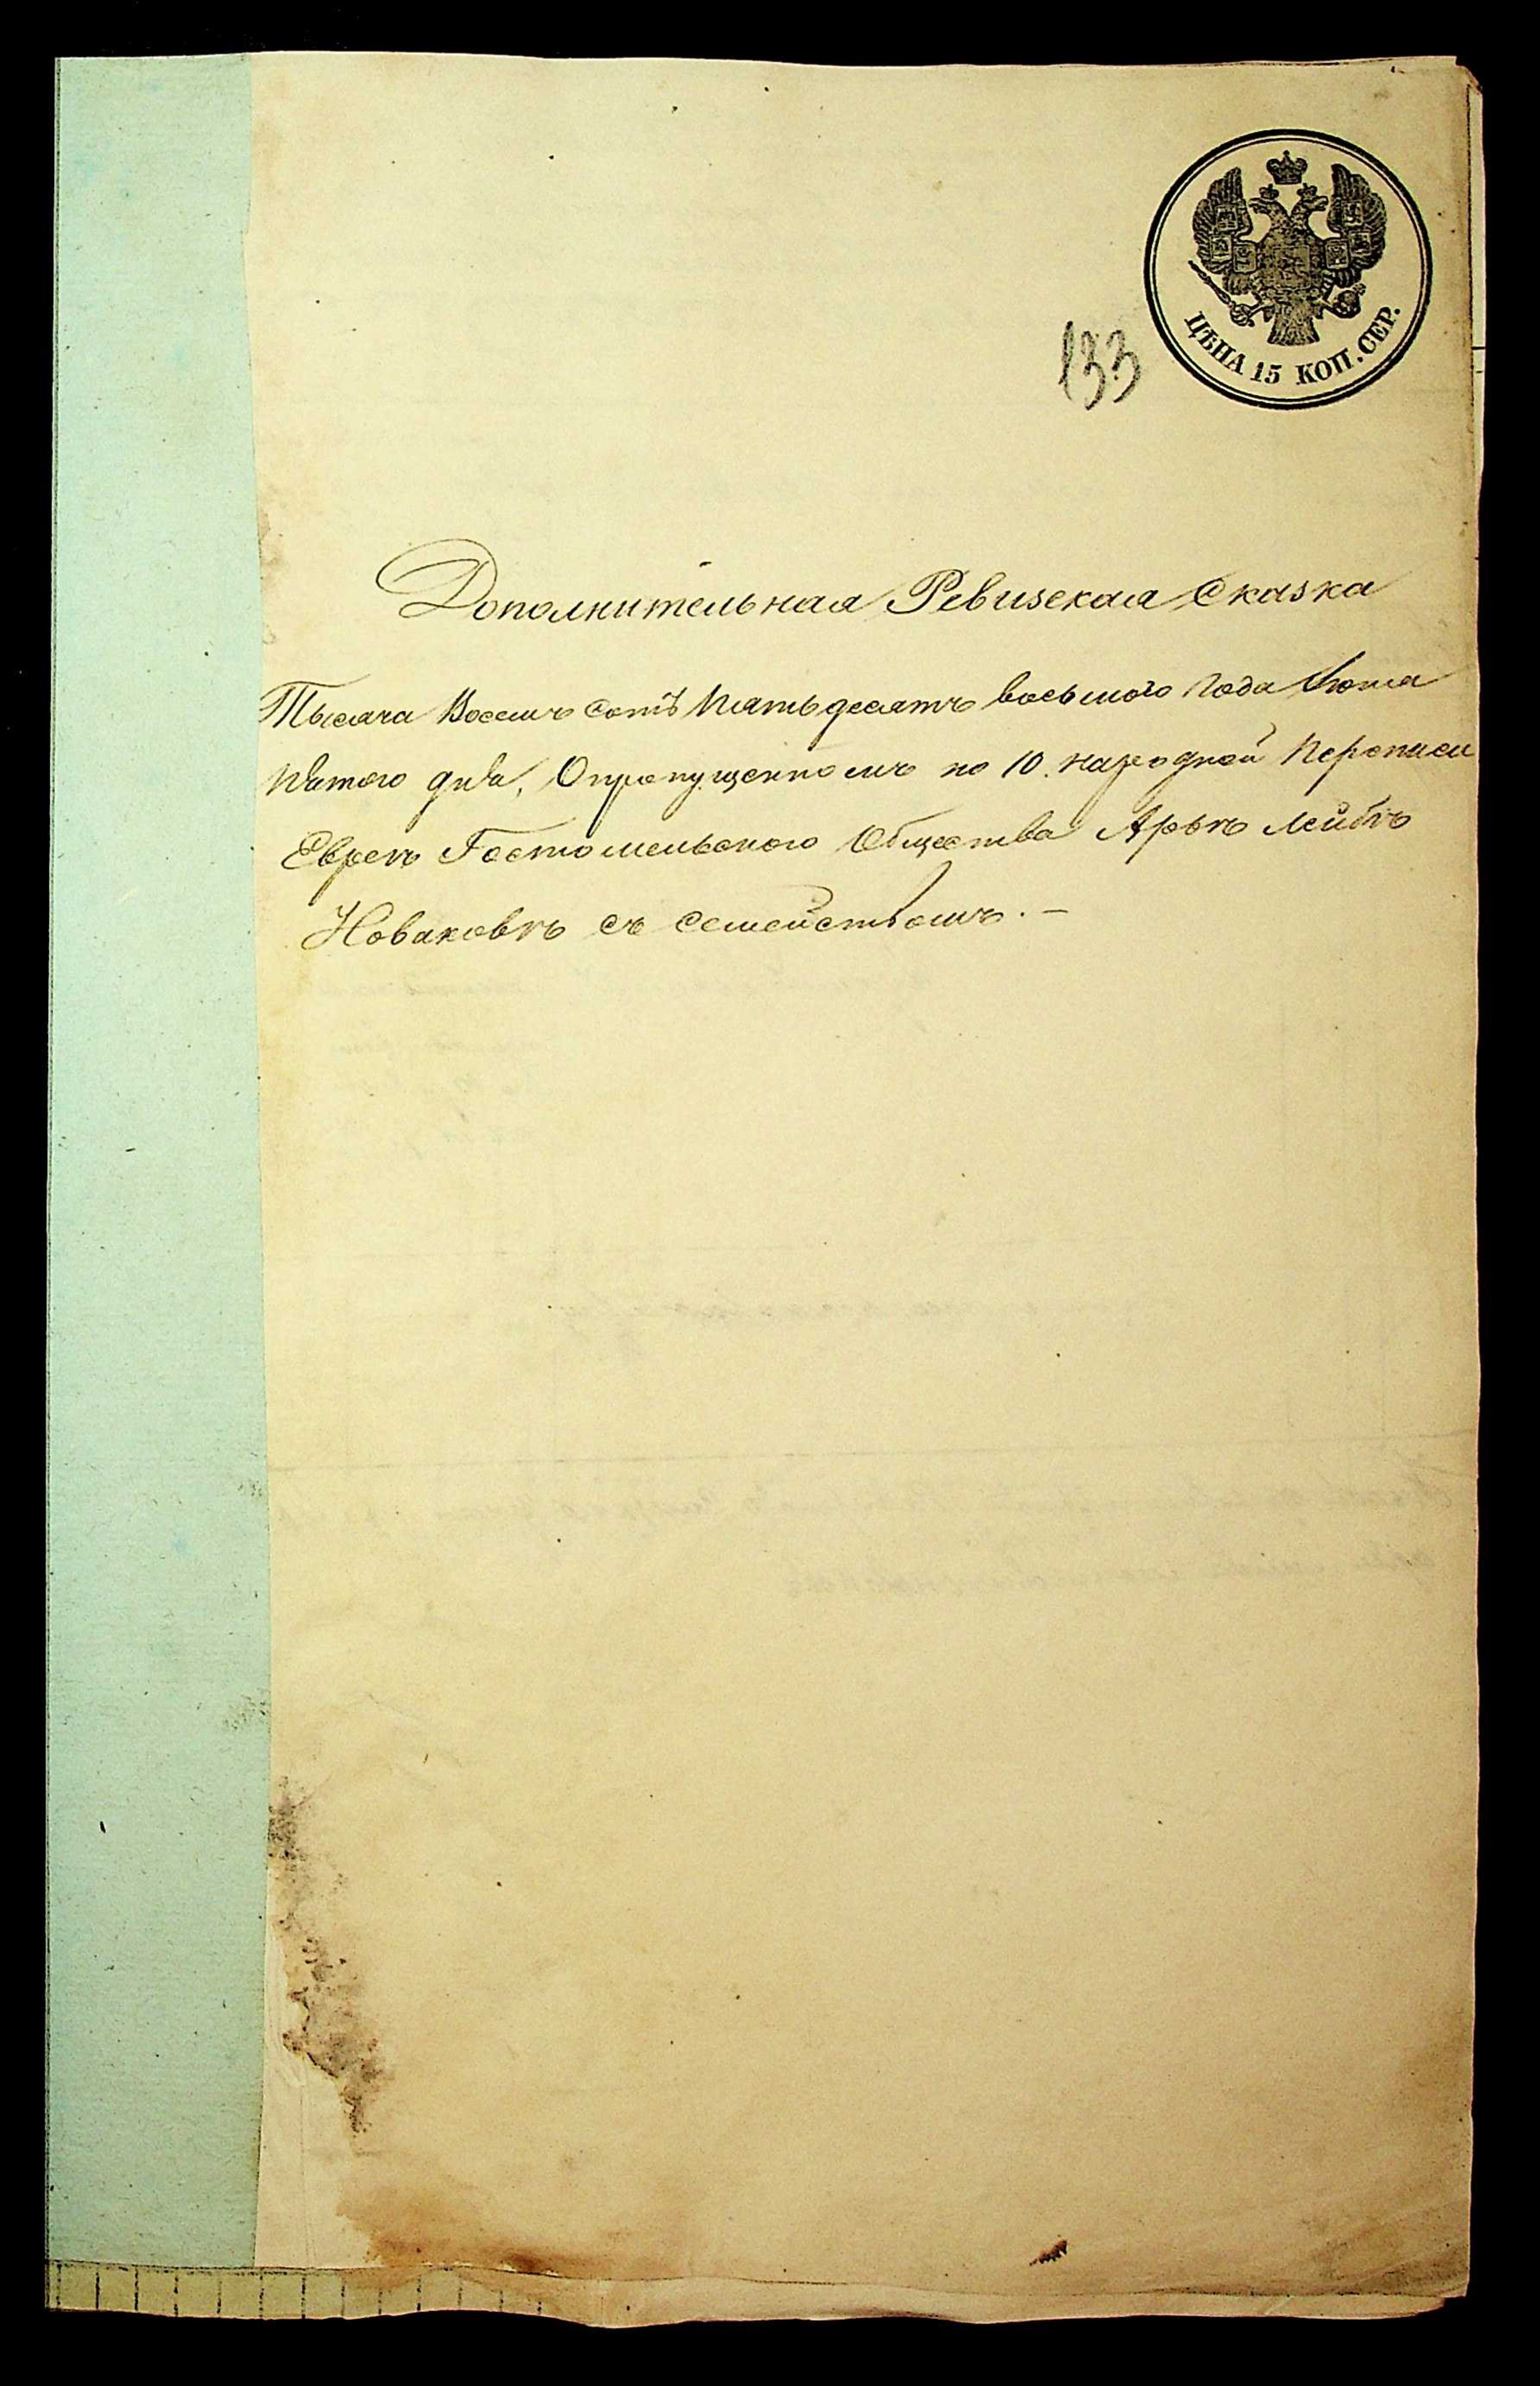 ЦѢНА 15 КОП. СЕР.
133
Дополнительная Ревизская Сказка
Тысяча Восемъ сотъ Пятьдесятъ восьмого Года Июня
пятого дня, О пропущенномъ по 10. народной Переписи
Еврее Гостомельского Общества Арьѣ Лейбѣ
Новаковѣ съ семействомъ. –